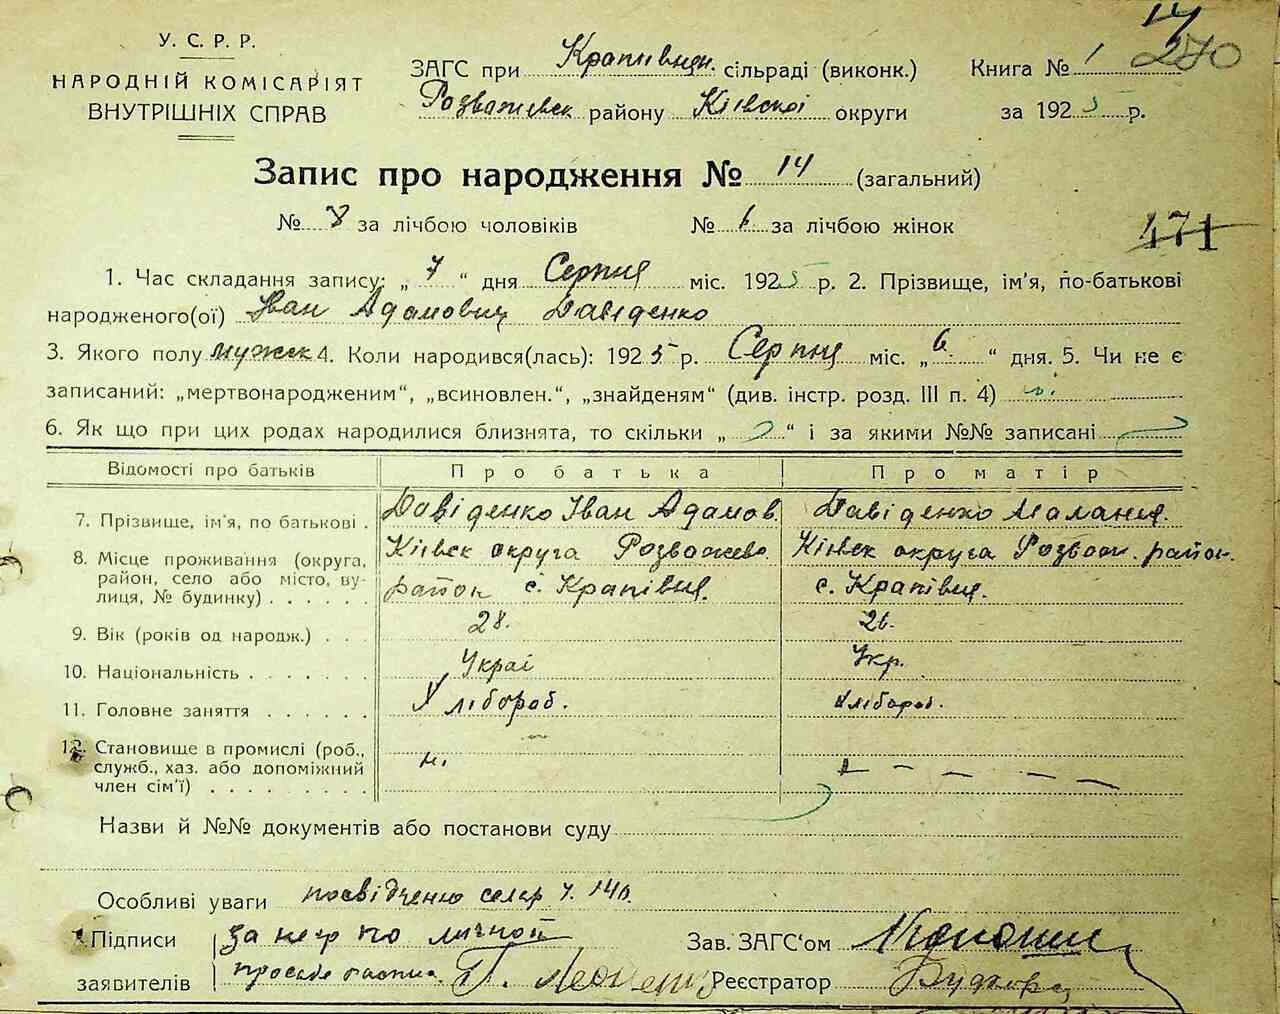 У. С. Р. Р.
НАРОДНІЙ КОМІСАРІЯТ
ВНУТРІШНІХ СПРАВ
14
270
ЗАГС при Крапивнян. сільраді (виконк.) Книга № 1
Розважевск району Київскої округи за 1925 р.
Запис про народження № 14 (загальний)
№ 8 за лічбою чоловіків № 6 за лічбою жінок
471
1. Час складання запису: „ 7 “ дня Серпня міс. 1925 р. 2. Прізвище, ім'я, по-батькові
народженого(ої) Іван Адамович Давіденко
3. Якого полу мужск 4. Коли народився(лась): 1925 р. Серпня міс. „ 6 “ дня. 5. Чи не є
записаний: „мертвонародженим“, „всиновлен.“, „знайденям“ (див. інстр. розд. III п. 4)
6. Як що при цих родах народилися близнята, то скільки „ “ і за якими №№ записані
Відомості про батьків Про батька Про матір
7. Прізвище, ім'я, по батькові . Давіденко Іван Адамов. Давіденко Маланія.
8. Місце проживання (округа, район, село або місто, вулиця, № будинку) . . . . . Київск округа Розважево. район с. Крапівня. Київск округа Розваж. район. с. Крапівня.
9. Вік (років од народж.) . . . 28. 26.
10. Національність . . . . . . . Украі Укр.
11. Головне заняття . . . . . . Хлібороб. Хлібороб.
12. Становище в промислі (роб., служб., хаз. або допоміжний член сім'ї) . . . . . . . . . н. — — — — —
Назви й №№ документів або постанови суду
Особливі уваги посвідченю селяр
Підписи за негр по личной Зав. ЗАГС'ом
заявителів просьбе Реєстратор